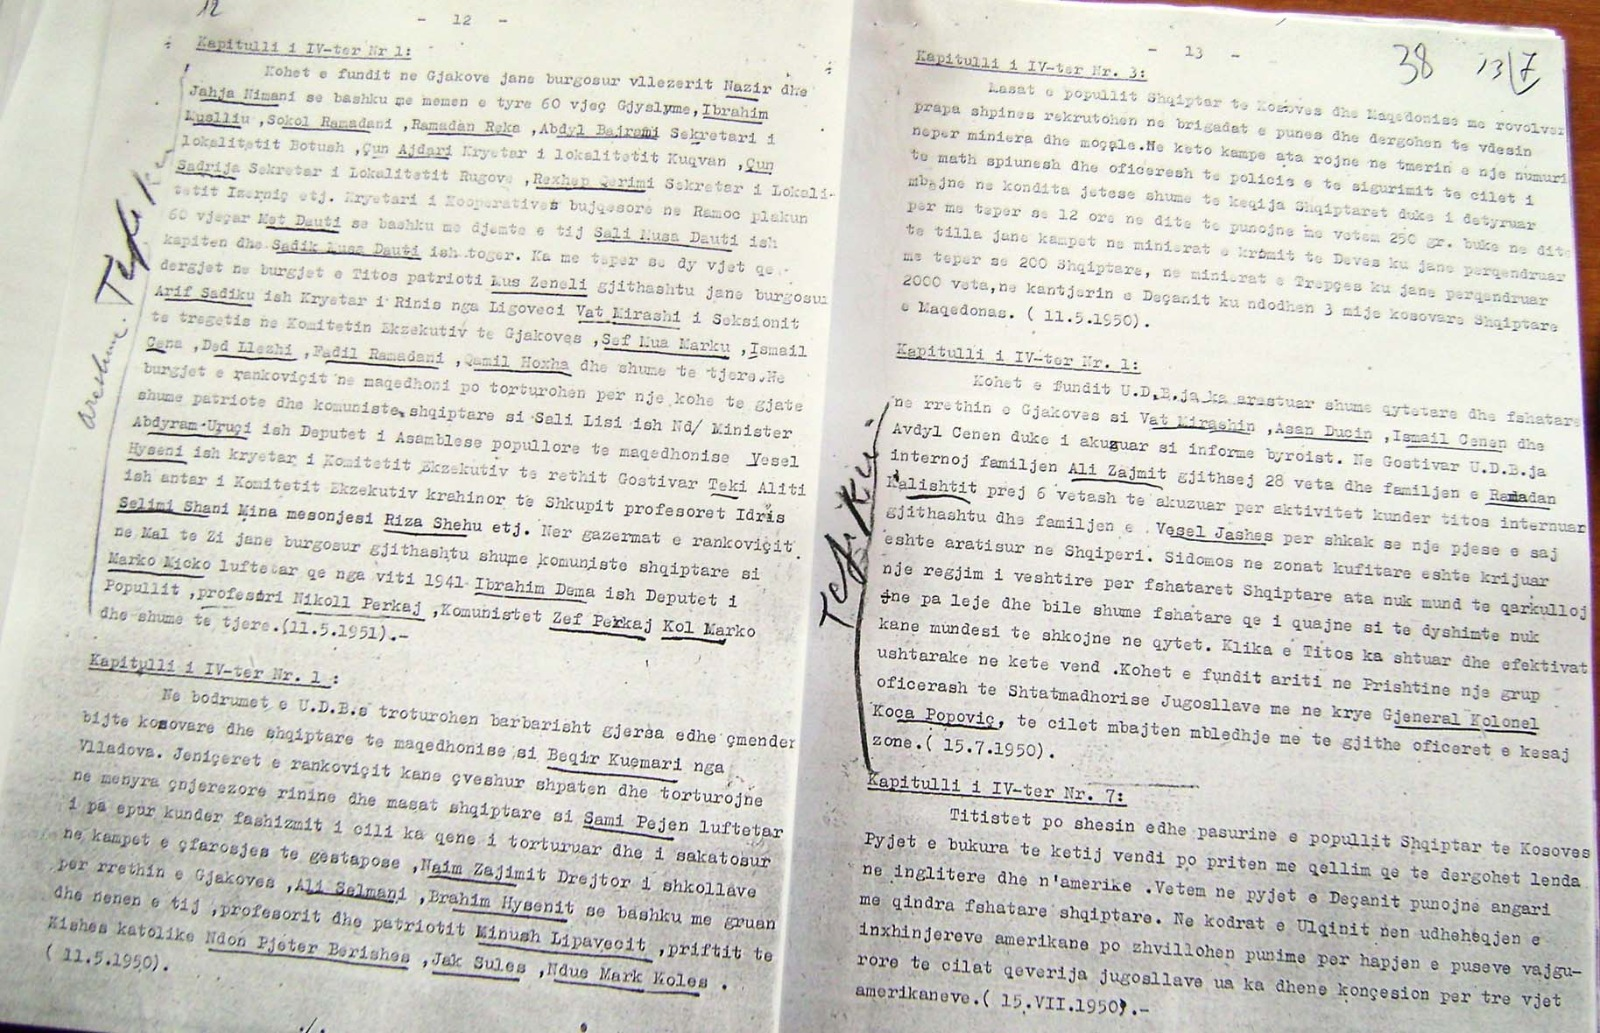 12
- 12 -
Kapitulli i IV-ter Nr 1:
Kohet e fundit ne Gjakove jane burgosur vllezerit Nazir dhe
Jahja Nimani se bashku me memen e tyre 60 vjeç Gjyslyme, Ibrahim
,Sokol Ramadani ,Ramadan Reka ,Abdyl Bajrami Sekretari i
lokalitetit Botush ,Çun Ajdari Kryetar i lokalitetit Kuqvan ,Çun
Sadrija Sekretar i Lokalitetit Rugove ,Rexhep Qerimi Sekretar i Lokali-
tetit Izerniç etj. Kryetari i Kooperatives bujqesore ne Ramoc plakun
60 vjeçar Met Dauti se bashku me djemte e tij Sali Musa Dauti ish
kapiten dhe Sadik Musa Dauti ish toger. Ka me teper se dy vjet qe
dergjet ne burgjet e Titos patrioti Mus Zeneli gjithashtu jane burgosur
Arif Sadiku ish Kryetar i Rinis nga Ligoveci Vat Mirashi i Seksionit
te tregetis ne Komitetin Ekzekutiv te Gjakoves ,Sef Mua Marku ,Ismail
Cena ,Ded Llezhi ,Fadil Ramadani ,Qamil Hoxha dhe shume te tjere.Ne
burgjet e rankoviçit ne maqedhoni po torturohen per nje kohe te gjate
shume patriote dhe komuniste shqiptare si Sali Lisi ish Nd/ Minister
Abdyram Uruçi ish Deputet i Asamblese popullore te maqedhonise Vesel
Hyseni ish kryetar i Komitetit Ekzekutiv te rethit Gostivar Teki Aliti
ish antar i Komitetit Ekzekutiv krahinor te Shkupit profesoret Idris
Selimi Shani Mina mesonjesi Riza Shehu etj. Ner gazermat e rankoviçit
ne Mal te Zi jane burgosur gjithashtu shume komuniste shqiptare si
Marko Nicko luftetar qe nga viti 1941 Ibrahim Dema ish Deputet i
Popullit ,profesori Nikoll Perkaj ,Komunistet Zef Perkaj Kol Marko
dhe shume te tjere.(11.5.1951).-
Kapitulli i IV-ter Nr. 1 :
Ne bodrumet e U.D.B.s troturohen barbarisht gjersa edhe çmender
bijte kosovare dhe shqiptare te maqedhonise si Beqir Kuemari nga
Vlladova. Jeniçeret e rankoviçit kane çveshur shpaten dhe torturojne
ne menyra çnjerezore rinine dhe masat shqiptare si Sami Pejen luftetar
i pa epur kunder fashizmit i cili ka qene i torturuar dhe i sakatosur
ne kampet e çfarosjes te gestapose ,Naim Zajimit Drejtor i shkollave
per rrethin e Gjakoves ,Ali Selmani ,Brahim Hysenit se bashku me gruan
dhe nenen e tij ,profesorit dhe patriotit Minush Lipavecit ,priftit te
Kishes katolike Ndon Pjeter Berishes ,Jak Sules ,Ndue Mark Koles .
( 11.5.1950).
./.
- 13 -
38 13/7
Kapitulli i IV-ter Nr. 3:
Masat e popullit Shqiptar te Kosoves dhe Maqedonise me rovolver
prapa shpines rekrutohen ne brigadat e punes dhe dergohen te vdesin
neper miniera dhe moçale.Ne keto kampe ata rojne ne tmerin e nje numuri
te math spiunesh dhe oficeresh te policis e te sigurimit te cilet i
mbajne ne kondita jetese shume te keqija Shqiptaret duke i detyruar
per me teper se 12 ore ne dite te punojne me vetem 250 gr. buke ne dite
te tilla jane kampet ne minierat e kromit te Deves ku jane perqendruar
me teper se 200 Shqiptare, ne minierat e Trepçes ku jane perqendruar
2000 veta,ne kantjerin e Deçanit ku ndodhen 3 mije kosovare Shqiptare
e Maqedonas. ( 11.5.1950).
Kapitulli i IV-ter Nr. 1:
Kohet e fundit U.D.B.ja ka arestuar shume qytetare dhe fshatare
ne rrethin e Gjakoves si Vat Mirashin ,Asan Ducin ,Ismail Cenen dhe
Avdyl Cenen duke i akuzuar si informe byroist. Ne Gostivar U.D.B.ja
internoj familjen Ali Zajmit gjithsej 28 veta dhe familjen e Ramadan
Kalishtit prej 6 vetash te akuzuar per aktivitet kunder titos internuar
gjithashtu dhe familjen e . Vesel Jashes per shkak se nje pjese e saj
eshte aratisur ne Shqiperi. Sidomos ne zonat kufitare eshte krijuar
nje regjim i veshtire per fshataret Shqiptare ata nuk mund te qarkulloj
jne pa leje dhe bile shume fshatare qe i quajne si te dyshimte nuk
kane mundesi te shkojne ne qytet. Klika e Titos ka shtuar dhe efektivat
ushtarake ne kete vend .Kohet e fundit ariti ne Prishtine nje grup
oficerash te Shtatmadhorise Jugosllave me ne krye Gjeneral Kolonel
Koça Popoviç, te cilet mbajten mbledhje me te gjithe oficeret e kesaj
zone.( 15.7.1950).
Kapitulli i IV-ter Nr. 7:
Titistet po shesin edhe pasurine e popullit Shqiptar te Kosoves
Pyjet e bukura te ketij vendi po priten me qellim qe te dergohet lenda
ne inglitere dhe n'amerike .Vetem ne pyjet e Deçanit punojne angari
me qindra fshatare shqiptare. Ne kodrat e Ulqinit nen udheheqjen e
inxhinjereve amerikane po zhvillohen punime per hapjen e puseve vajgu-
rore te cilat qeverija jugosllave ua ka dhene konçesion per tre vjet
amerikaneve.( 15.VII.1950).-